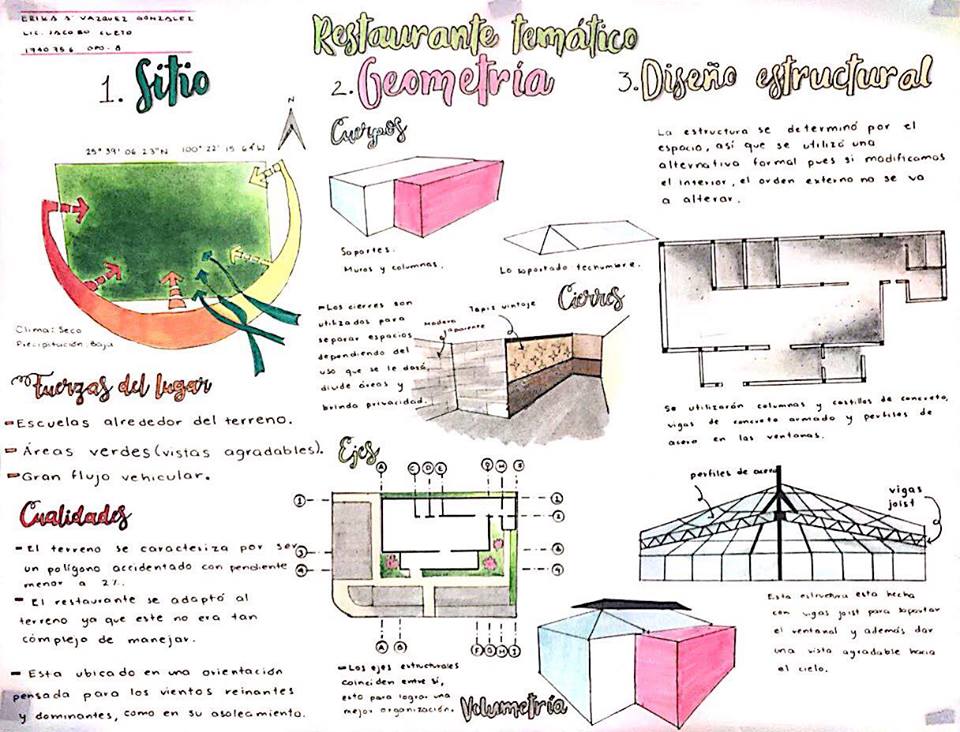 ERIKA S. VAZQUEZ GONZALEZ
LIC. JACOBO CUETO
1740756 GPO. 8
Restaurante temático
1. Sitio
25° 39' 06.23"N 100° 22' 15.64"W
N
Clima: Seco
Precipitación: Baja
Fuerzas del lugar
Escuelas alrededor del terreno.
Áreas verdes (vistas agradables).
Gran flujo vehicular.
Cualidades
- El terreno se caracteriza por ser
un polígono accidentado con pendiente
menor a 2%.
- El restaurante se adaptó al
terreno ya que este no era tan
complejo de manejar.
- Esta ubicado en una orientación
pensada para los vientos reinantes
y dominantes, como en su asoleamiento.
2. Geometría
Cuerpos
Soportes:
Muros y columnas.
Lo soportado techumbre.
Cierres
- Los cierres son
utilizados para
separar espacios
dependiendo del
uso que se le dará,
divide áreas y
brinda privacidad.
Madera
aparente
Tapiz vintage
Ejes
A C D E G H I
1
3
4
1
2
3
4
A B F G H I
- Los ejes estructurales
coinciden entre sí,
esto para lograr una
mejor organización.
Volumetría
3. Diseño estructural
La estructura se determinó por el
espacio, así que se utilizó una
alternativa formal pues si modificamos
el interior, el orden externo no se va
a alterar.
Se utilizarán columnas y castillos de concreto,
vigas de concreto armado y perfiles de
acero en las ventanas.
perfiles de acero
vigas
joist
Esta estructura esta hecha
con vigas joist para soportar
el ventanal y además dar
una vista agradable hacia
el cielo.